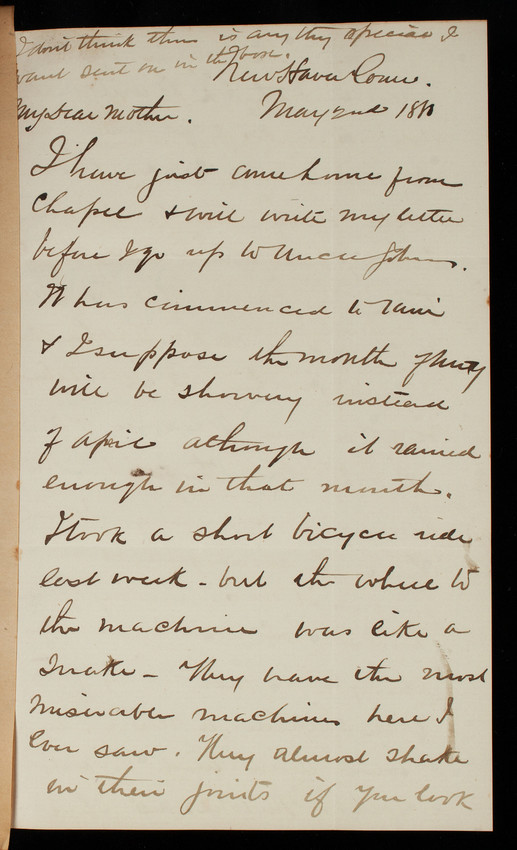 I dont think there is any thing special I
want sent on in the box.
New Haven Conn.
My Dear Mother. May 2nd 1880
I have just come home from
Chapel & will write my letter
before I go up to Uncle Johns.
It has commenced to rain
& I suppose the month of May
will be showery instead
of April although it rained
enough in that month.
I took a short bicycle ride
last week - but the wheel to
the machine was like a
snake - They have the most
miserable machines here I
ever saw. They almost shake
in their joints if you look